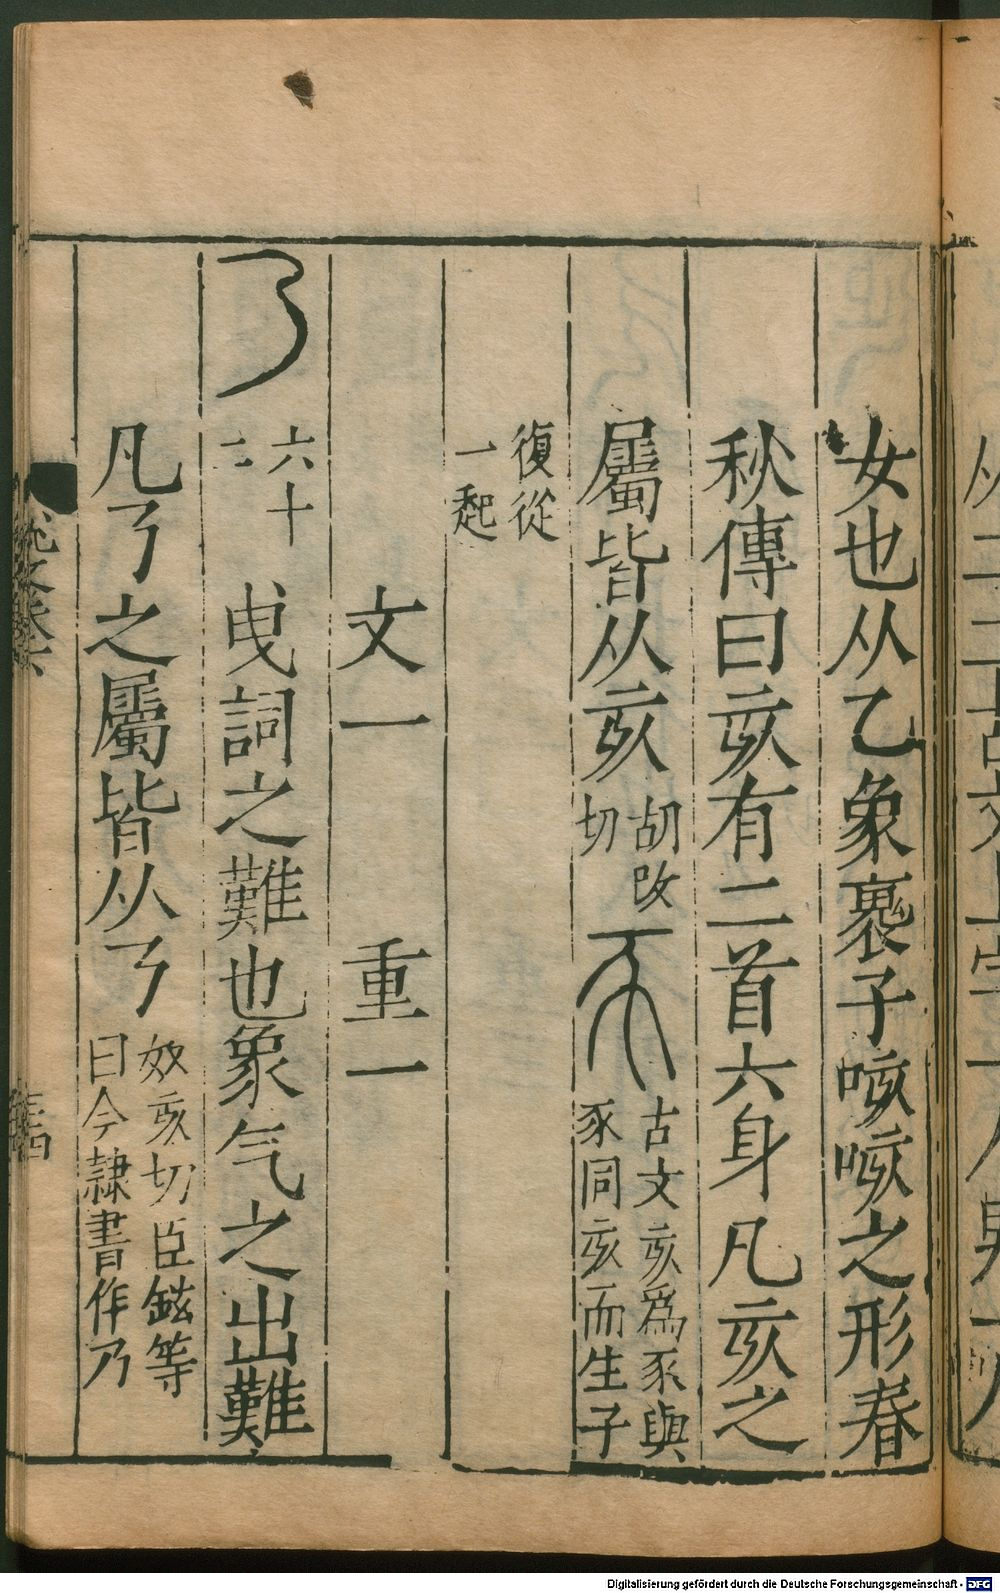 女也从乙象褢子咳咳之形春
秋傳曰亥有二首六身凡亥之
屬皆从亥胡改切𠀅古文亥爲豕與豕同亥而生子
復從一起
文一 重一
𠄎六十二 曳詞之難也象气之出難
凡𠄎之屬皆从𠄎奴亥切臣鉉等曰今隷書作乃
Digitalisierung gefördert durch die Deutsche Forschungsgemeinschaft - DFG